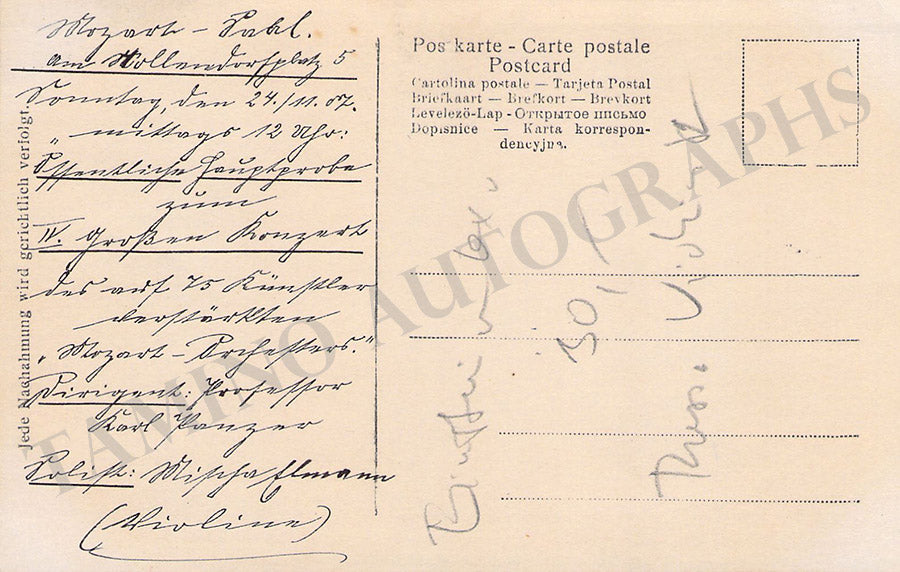 Mozart - Saal.
am Nollendorfplatz 5
Sonntag, den 24./11.07.
" mittags 12 Uhr:
Öffentliche Hauptprobe
zum
IV. Großen Konzert
des auf 75 Künstler
verstärkten
„Mozart - Orchesters."
Dirigent: Professor
Karl Panzer
Solist: Mischa Elmann
(Violine)
Jede Nachahmung wird gerichtlich verfolgt.
Postkarte - Carte postale
Postcard
Cartolina postale — Tarjeta Postal
Briefkaart — Brefkort — Brevkort
Levelező-Lap - Открытое письмо
Dopisnice — Karta korrespon-
dencyjna.
30
TAMINO AUTOGRAPHS